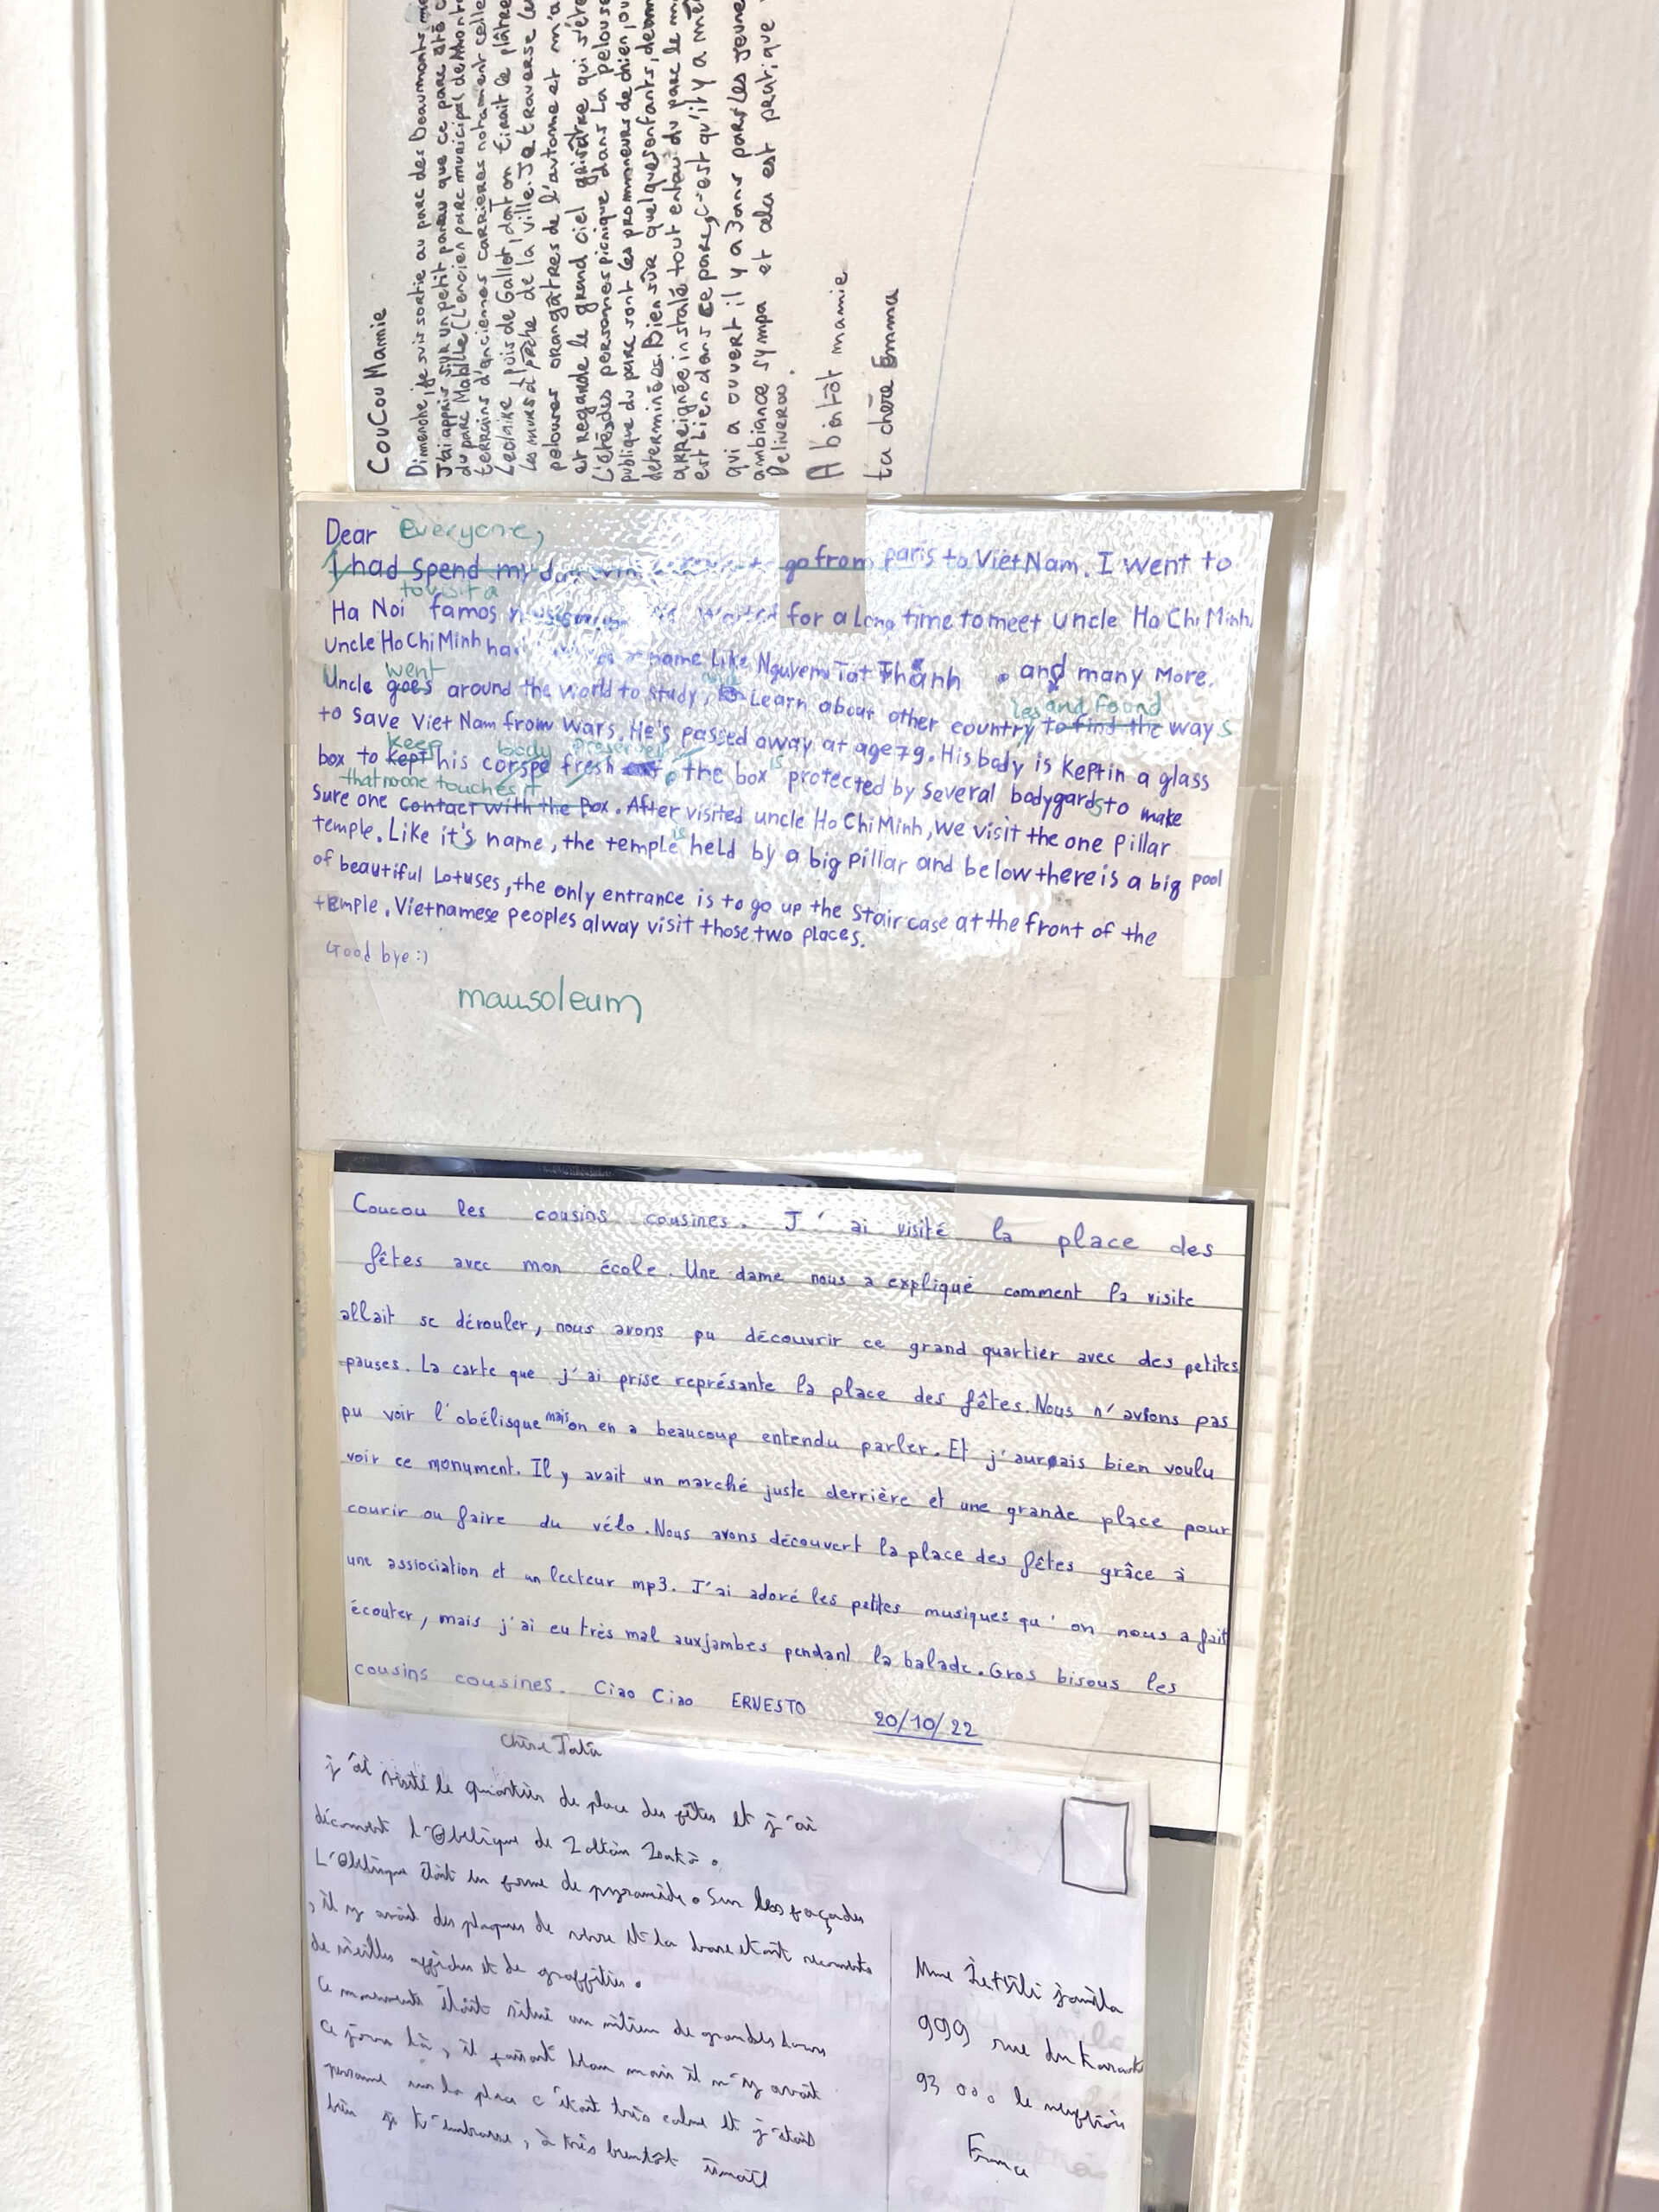 CouCou Mamie
Dimenche, je suis sortie au parc des Beaumonts
J'ai appris sur un petit panau que ce parc été
du parc Mabille (L'encien parc municipal de
terrains d'anciennes carrières notament celle
Leclaire puis de Gallot, dont on tirait le plâtre
Les murs à pèche de la ville. Je traverse
pelouses orangâtres de l'automne et m'a
et regarde le grand ciel grisâtre qui s'é
L'été, des personnes picnique dans La pelouse
publique du parc sont les prommeneurs de chien, ou
déterminées. Bien sûr quelques enfants,
arreignée instalé tout entour du parc le
est Lien dans ce parc, c'est qu'il y a
qui a ouvert il y a 3 ans pars les jeune
ambiance sympa et cela est pratique
Deliveroo.
A bientôt mamie
ta chère Emma
Dear Everyone,
I had spend my go from paris to Viet Nam. I went to
to visit a
Ha Noi famos for a Long time to meet uncle Ho Chi Minh.
Uncle Ho Chi Minh name Like Nguyen Tat Thành . and many More.
went
Uncle goes around the world to study, Learn about other country to find the ways
les and found
to save Viet Nam from wars. He's passed away at age 79. His body is Kept in a glass
keep body preserved
box to Kept his corspe fresh . the box is protected by Several bodygards to make
that no one touches it
Sure one contact with the Box. After visited uncle Ho Chi Minh, we visit the one Pillar
temple. Like it's name, the temple is held by a big Pillar and below there is a big Pool
of beautiful Lotuses, the only entrance is to go up the Stair case at the front of the
temple. Vietnamese peoples alway visit those two places.
Good bye :)
mausoleum
Coucou les cousins cousines. J'ai visité la place des
fêtes avec mon école. Une dame nous a expliqué comment la visite
allait se dérouler, nous avons pu découvrir ce grand quartier avec des petites
pauses. La carte que j'ai prise représante la place des fêtes. Nous n'avions pas
pu voir l'obélisque mais on en a beaucoup entendu parler. Et j'aurais bien voulu
voir ce monument. Il y avait un marché juste derrière et une grande place pour
courir ou faire du vélo. Nous avons découvert la place des fêtes grâce à
une assiociation et un lecteur mp3. J'ai adoré les petites musiques qu'on nous a fait
écouter, mais j'ai eu très mal aux jambes pendant la balade. Gros bisous les
cousins cousines. Ciao Ciao ERNESTO 20/10/22
Chère Tata
j'ai visité le quartier de place des fêtes et j'ai
découvert l'Obélique de Zoltàn
L'Obélique était en forme de pyramide. Sur les façades
, il y avait des plaques de verre et la base était
de vieilles affiches et de graffities.
Ce monuments était situé au milieu de grandes tours
Ce jour là, il faisait mais il n'y avait
personne sur la place c'était très calme et j'étais
bien je t'embrasse, à très bientôt ismaël
Mme jamila
999 rue du
93 000 le
France